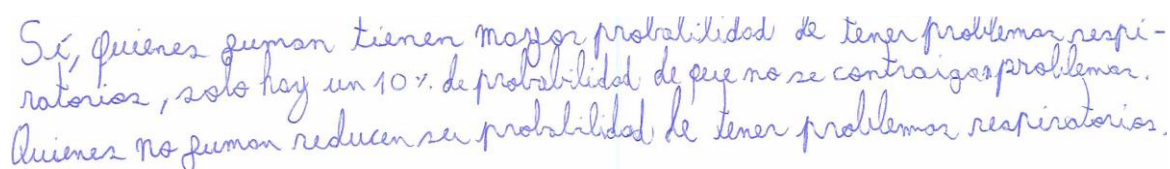 Sí, quienes fuman tienen mayor probabilidad de tener problemas respi-
ratorios, solo hay un 10% de probabilidad de que no se contraigan problemas.
Quienes no fuman reducen su probabilidad de tener problemas respiratorios.